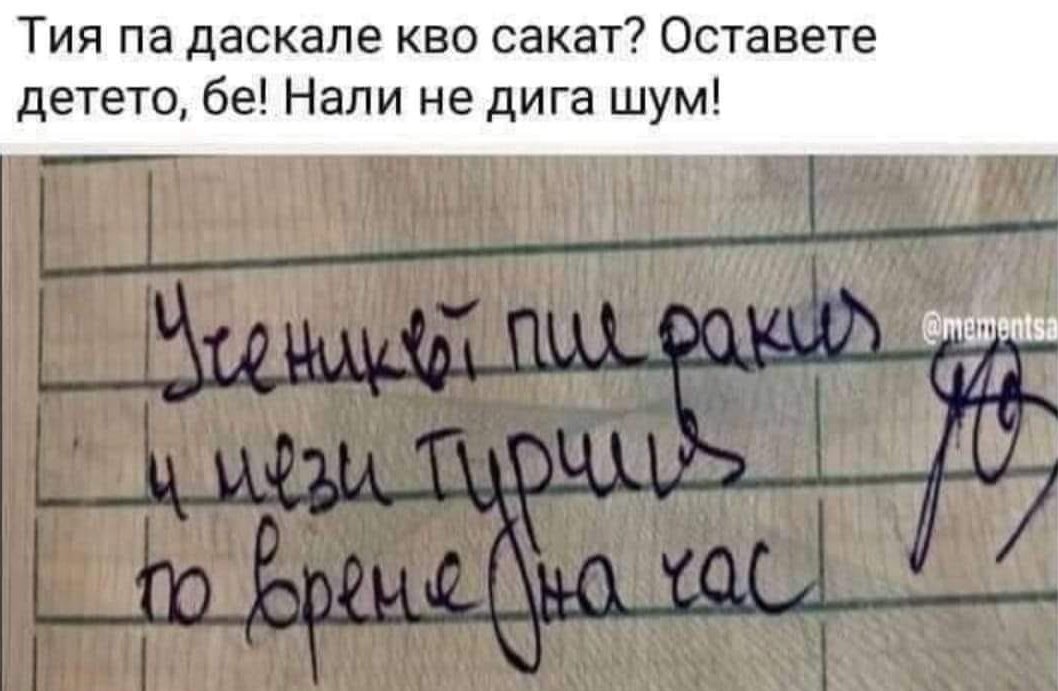 Тия па даскале кво сакат? Оставете
детето, бе! Нали не дига шум!
Ученикът пие ракия
@mementsa
и мези туршия
по време на час